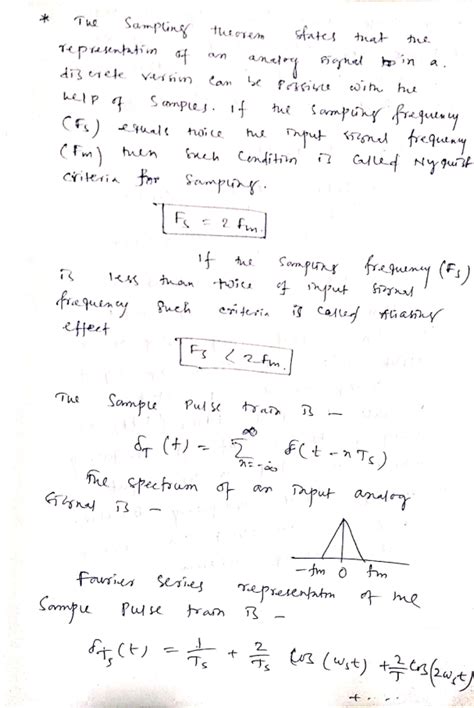 * The Sampling theorem states that the
representation of an analog signal to in a
discrete version can be possible with the
help of Samples. If the sampling frequency
(Fs) equals twice the input signal frequency
(Fm) then such condition is called Nyquist
criteria for sampling.
Fs = 2 fm.
If the sampling frequency (Fs)
is less than twice of input signal
frequency such criteria is called Aliasing
effect
Fs < 2 fm.
The Sample pulse train is —
δT (t) = ∞ Σ n=-∞ δ(t - nTs)
The spectrum of an input analog
signal is —
-fm 0 fm
Fourier series representatn of the
Sample pulse train is —
δTs (t) = 1/Ts + 2/Ts Cos (ωst) + 2/T Cos(2ωst)
+ ....